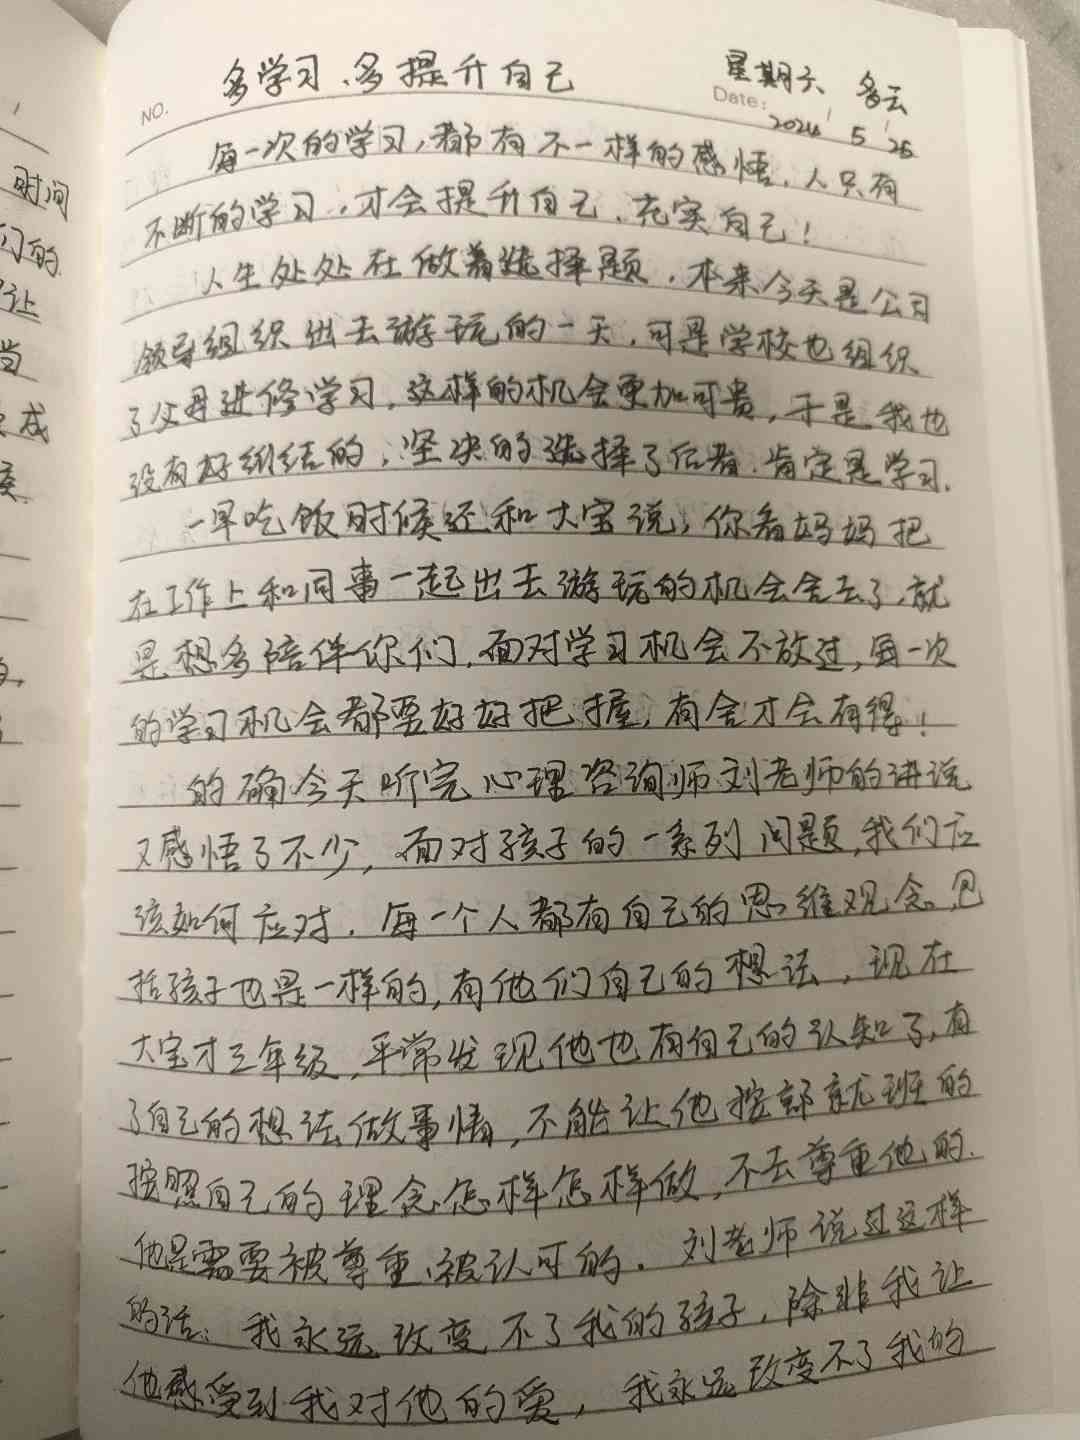 多学习、多提升自己
星期天 多云
NO.
Date: 2024 / 5 / 26
每一次的学习,都有不一样的感悟,人只有
不断的学习,才会提升自己、充实自己!
人生处处在做着选择题,本来今天是公司
领导组织出去游玩的一天,可是学校也组织
了父母进修学习,这样的机会更加可贵,于是我也
没有好纠结的,坚决的选择了后者,肯定是学习.
一早吃饭时候还和大宝说,你看妈妈把
在工作上和同事一起出去游玩的机会舍去了,就
是想多陪伴你们,面对学习机会不放过,每一次
的学习机会都要好好把握,有舍才会有得!
的确今天听完心理咨询师刘老师的讲说
又感悟了不少,面对孩子的一系列问题,我们应
该如何应对.每一个人都有自己的思维观念,包
括孩子也是一样的,有他们自己的想法,现在
大宝才三年级,平常发现他也有自己的认知了,有
了自己的想法做事情,不能让他按部就班的
按照自己的理念怎样怎样做,不去尊重他的.
他是需要被尊重、被认可的.刘老师说过这样
的话:我永远改变不了我的孩子,除非我让
他感受到我对他的爱,我永远改变不了我的
时间
们的
让
当
成